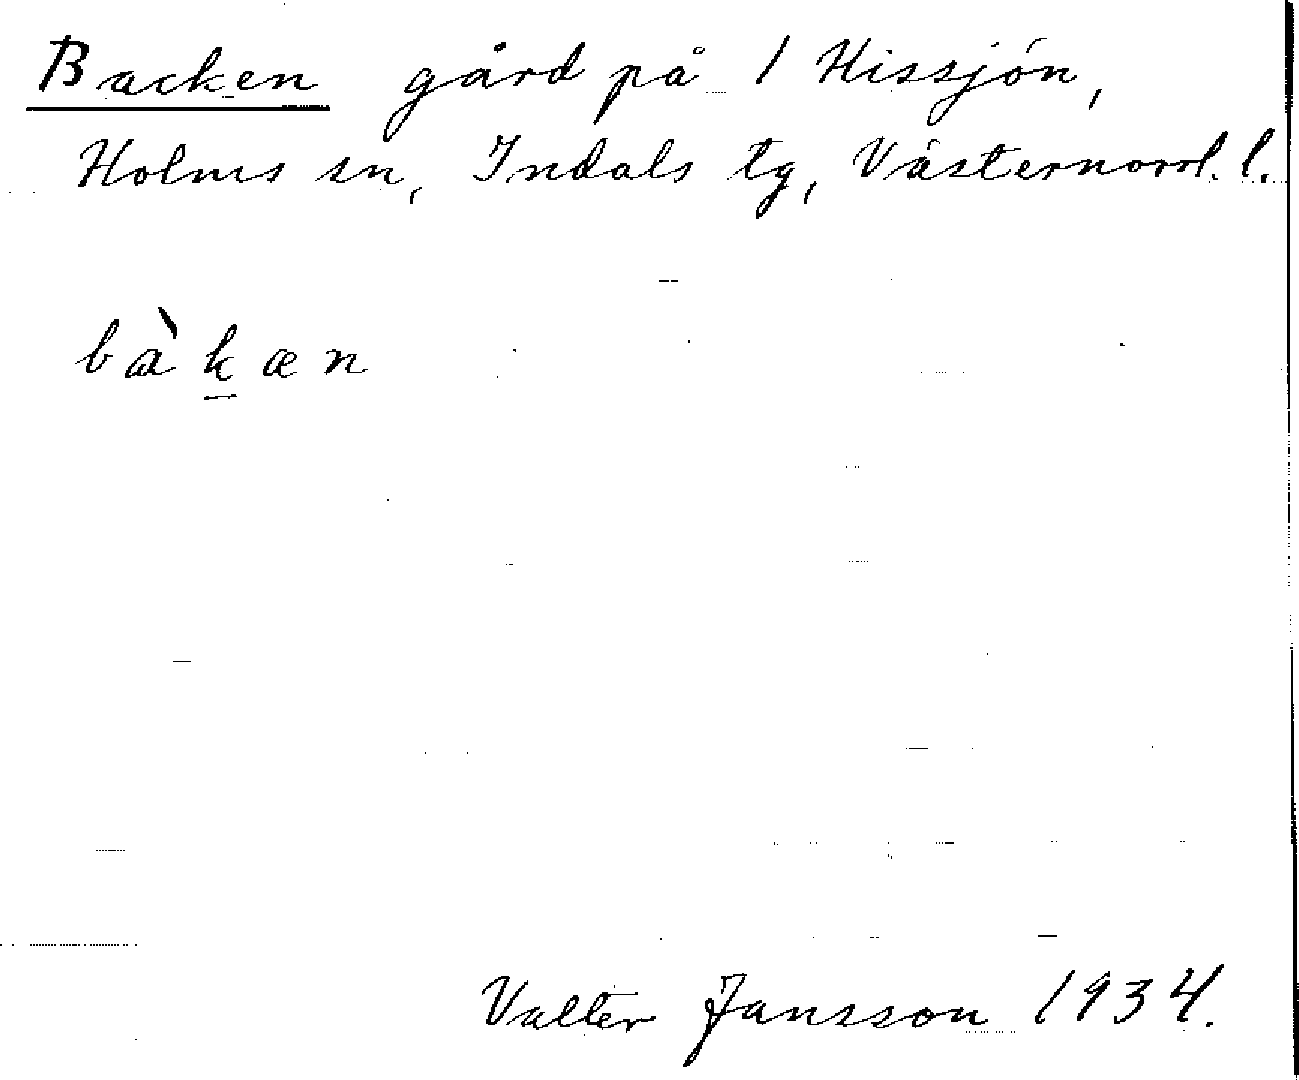 Backen gård på 1 Hissjön,
Holms sn, Indals tg, Västernorrl. l.
bàkæn
Valter Jansson 1934.